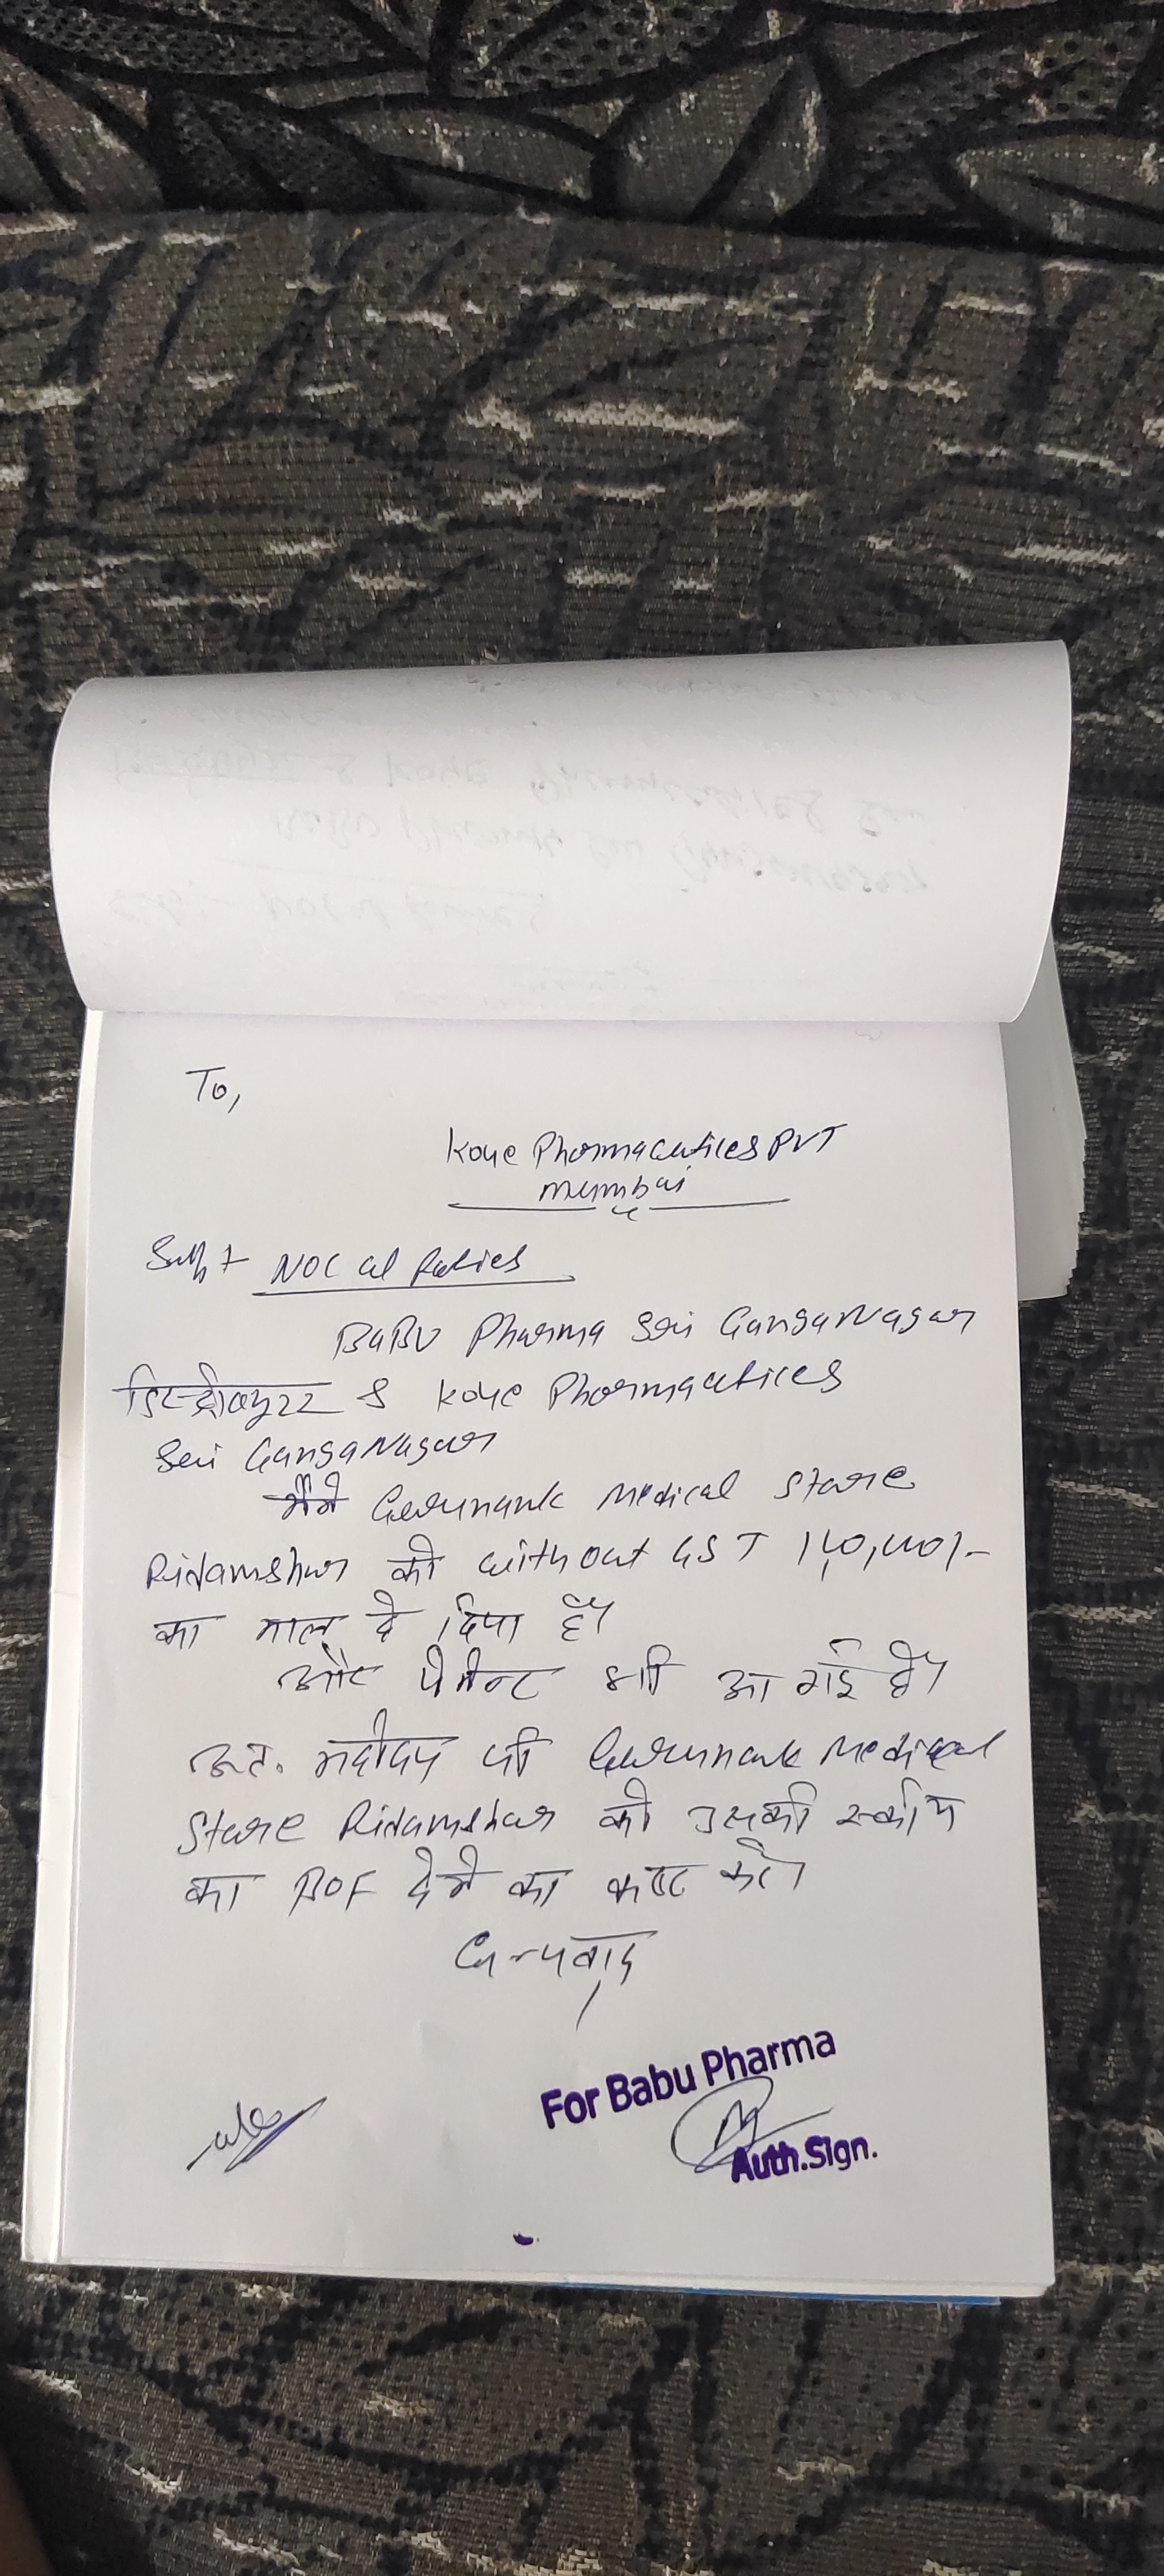 To,
Koye Pharmaceutices PVT
Mumbai
Sub :- NOC
BaBU Pharma Sri GangaNagar
डिस्ट्रीब्यूटर Koye Pharmaceutices
Sri GangaNagar
मैंने Gurunank Medical Store
Ridamshar को without GST
का माल दे दिया है।
और पेमेन्ट भी आ गई है।
अतः महोदय जी Gurunank Medical
Store Ridamshar को उसकी स्कीम
का देने का कष्ट करें।
धन्यवाद
For Babu Pharma
Auth.Sign.